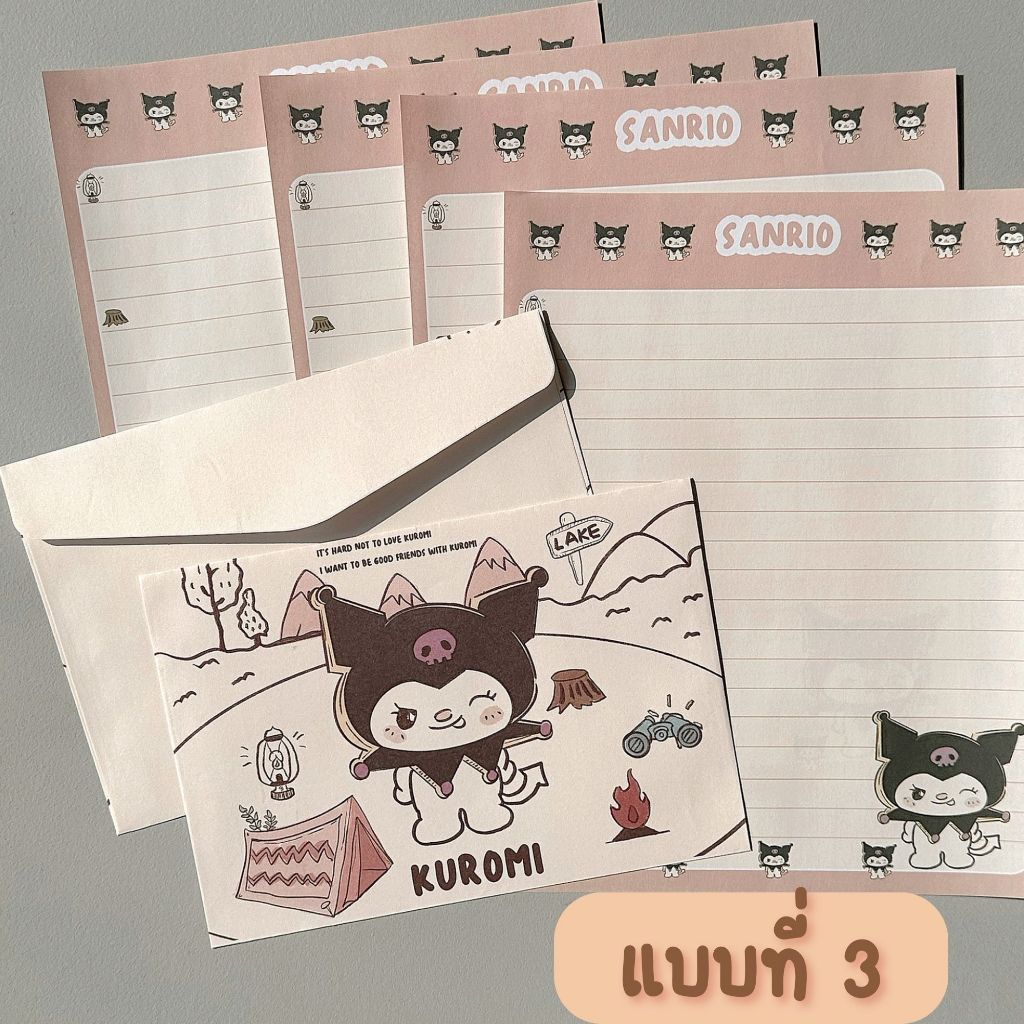 SANRIO
SANRIO
SANRIO
SANRIO
IT'S HARD NOT TO LOVE KUROMI
I WANT TO BE GOOD FRIENDS WITH KUROMI
LAKE
KUROMI
แบบที่ 3